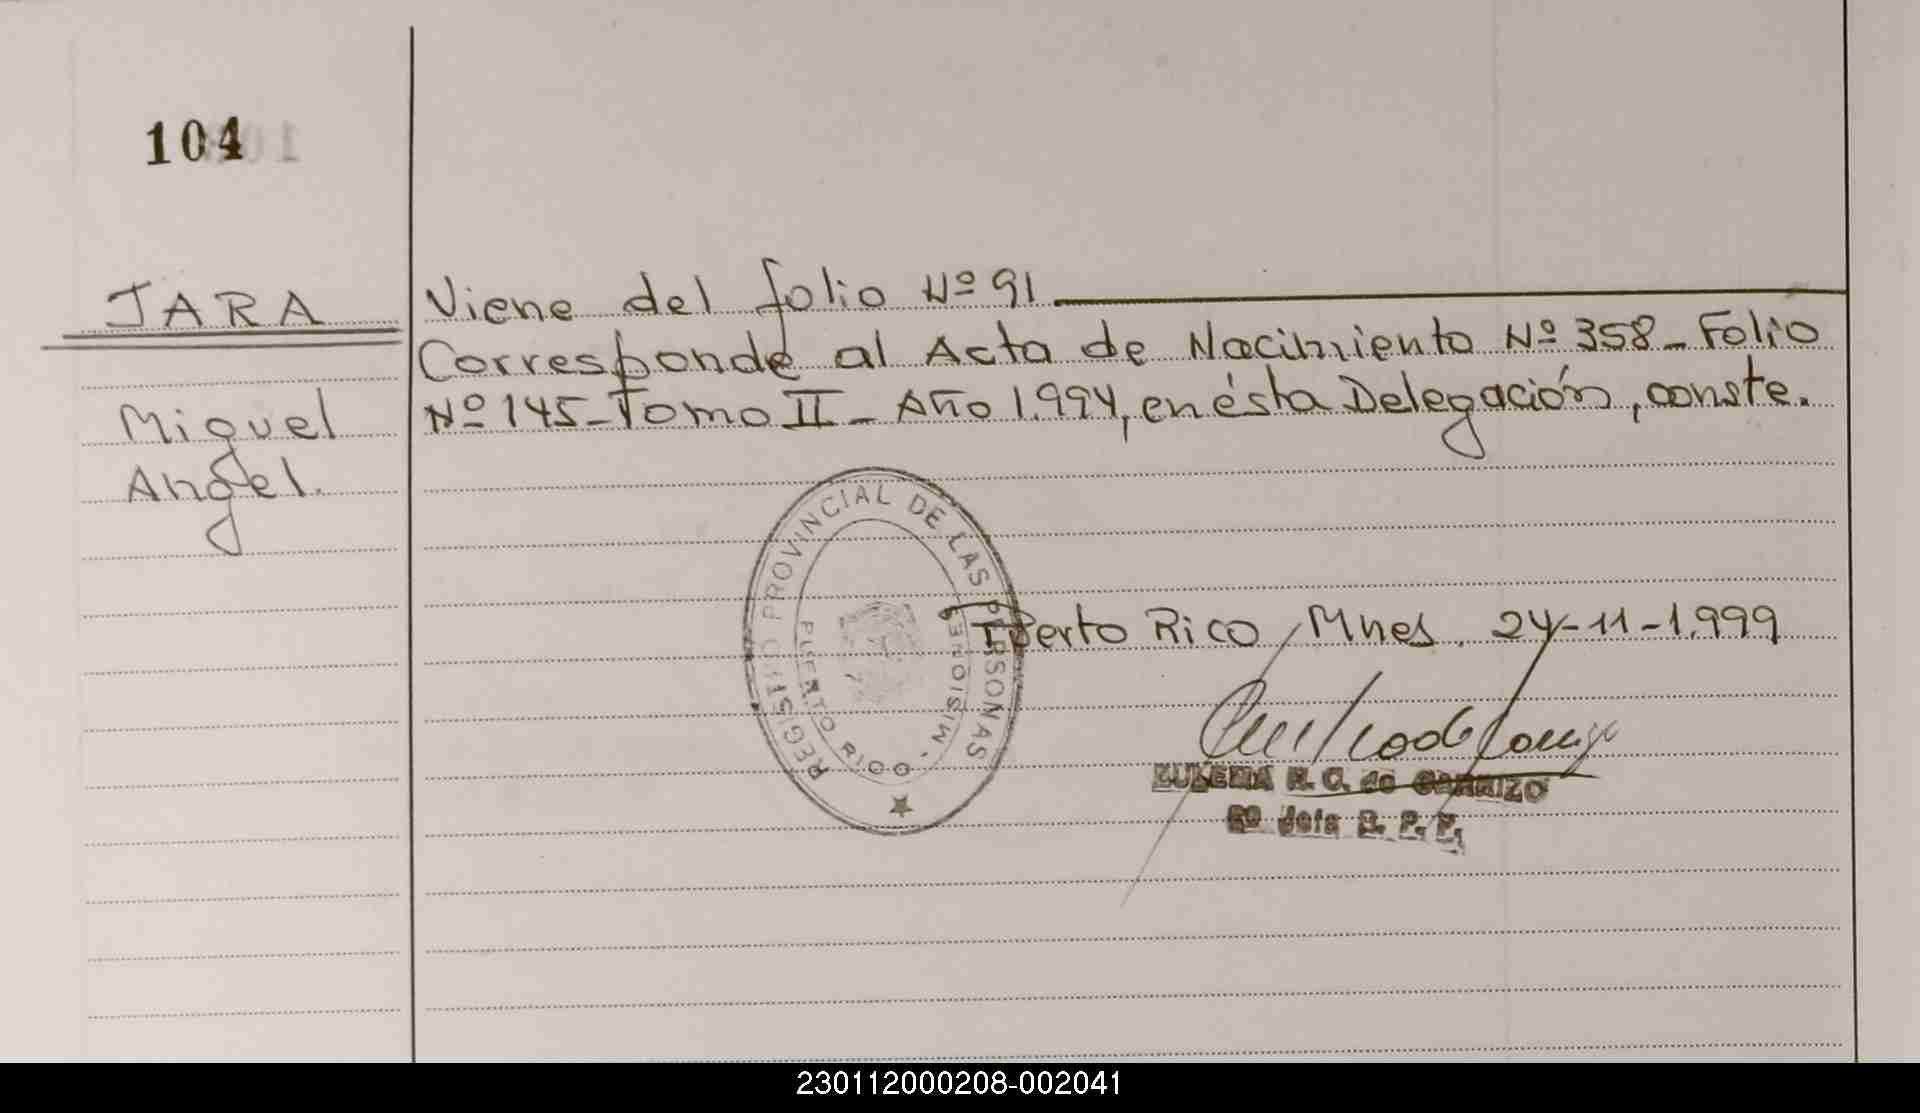 104
JARA
Miguel
Angel.
Viene del folio Nº 91
Corresponde al Acta de Nacimiento Nº 358 - Folio
Nº 145 - Tomo II - Año 1.994, en ésta Delegación, conste.
REGISTRO PROVINCIAL DE LAS PERSONAS
PUERTO RICO - MISIONES
Puerto Rico, Mnes, 24-11-1.999
R. C. de CARRIZO
Jefe
230112000208-002041